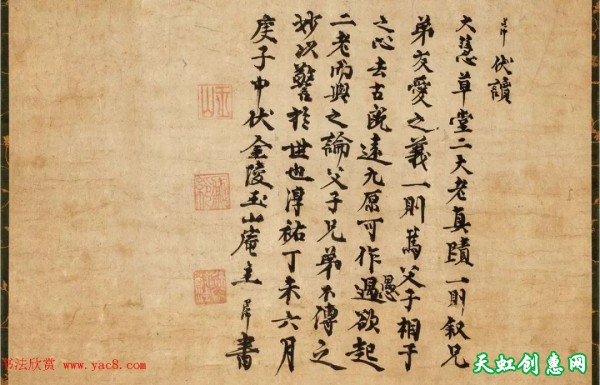 伏讀
大慧草堂二大老真蹟一則叙兄
弟友愛之義一則篤父子相于
之心去古既遠九原可作愚欲起
二老而與之論父子兄弟不傳之
妙以警於世也淳祐丁未六月
庚子中伏金陵玉山庵主 書
玉山
书法欣赏 www.yac8.com
天虹创惠网